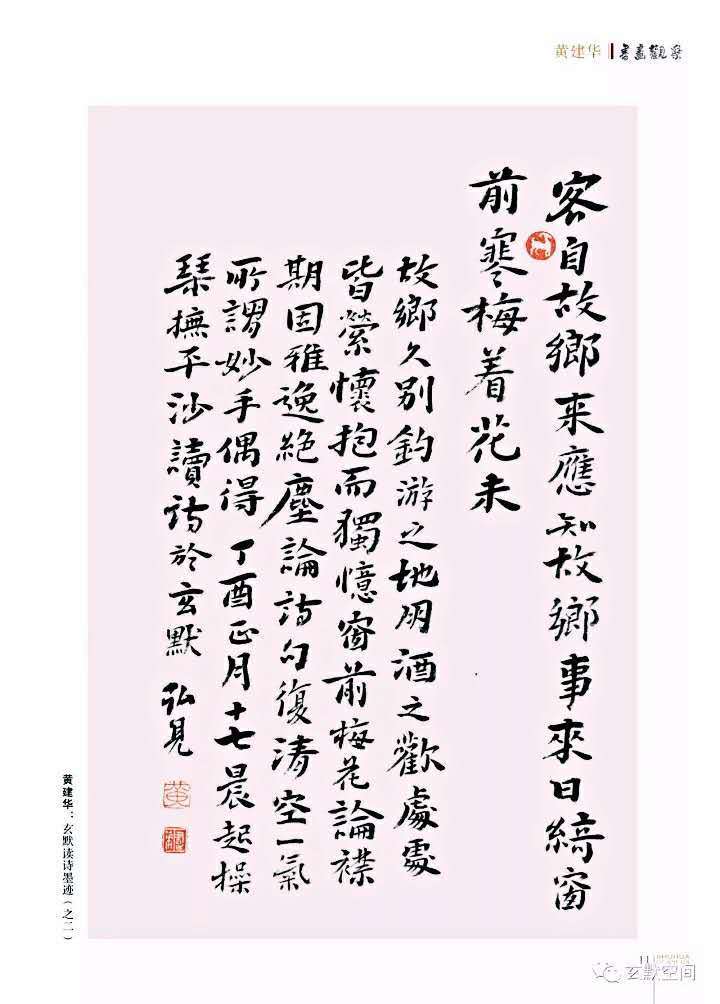 黄建华 書畫觀察
客自故鄉来應知故鄉事來日綺窗
前寒梅着花未
故鄉久别釣游之地朋酒之歡處處
皆縈懷抱而獨憶窗前梅花論襟
期固雅逸絶塵論诗句復清空一氣
所謂妙手偶得 丁酉正月十七晨起操
琹撫平沙讀诗於玄默 弘見
黄
黄建华：玄默读诗墨迹（之二）
11
玄默空间